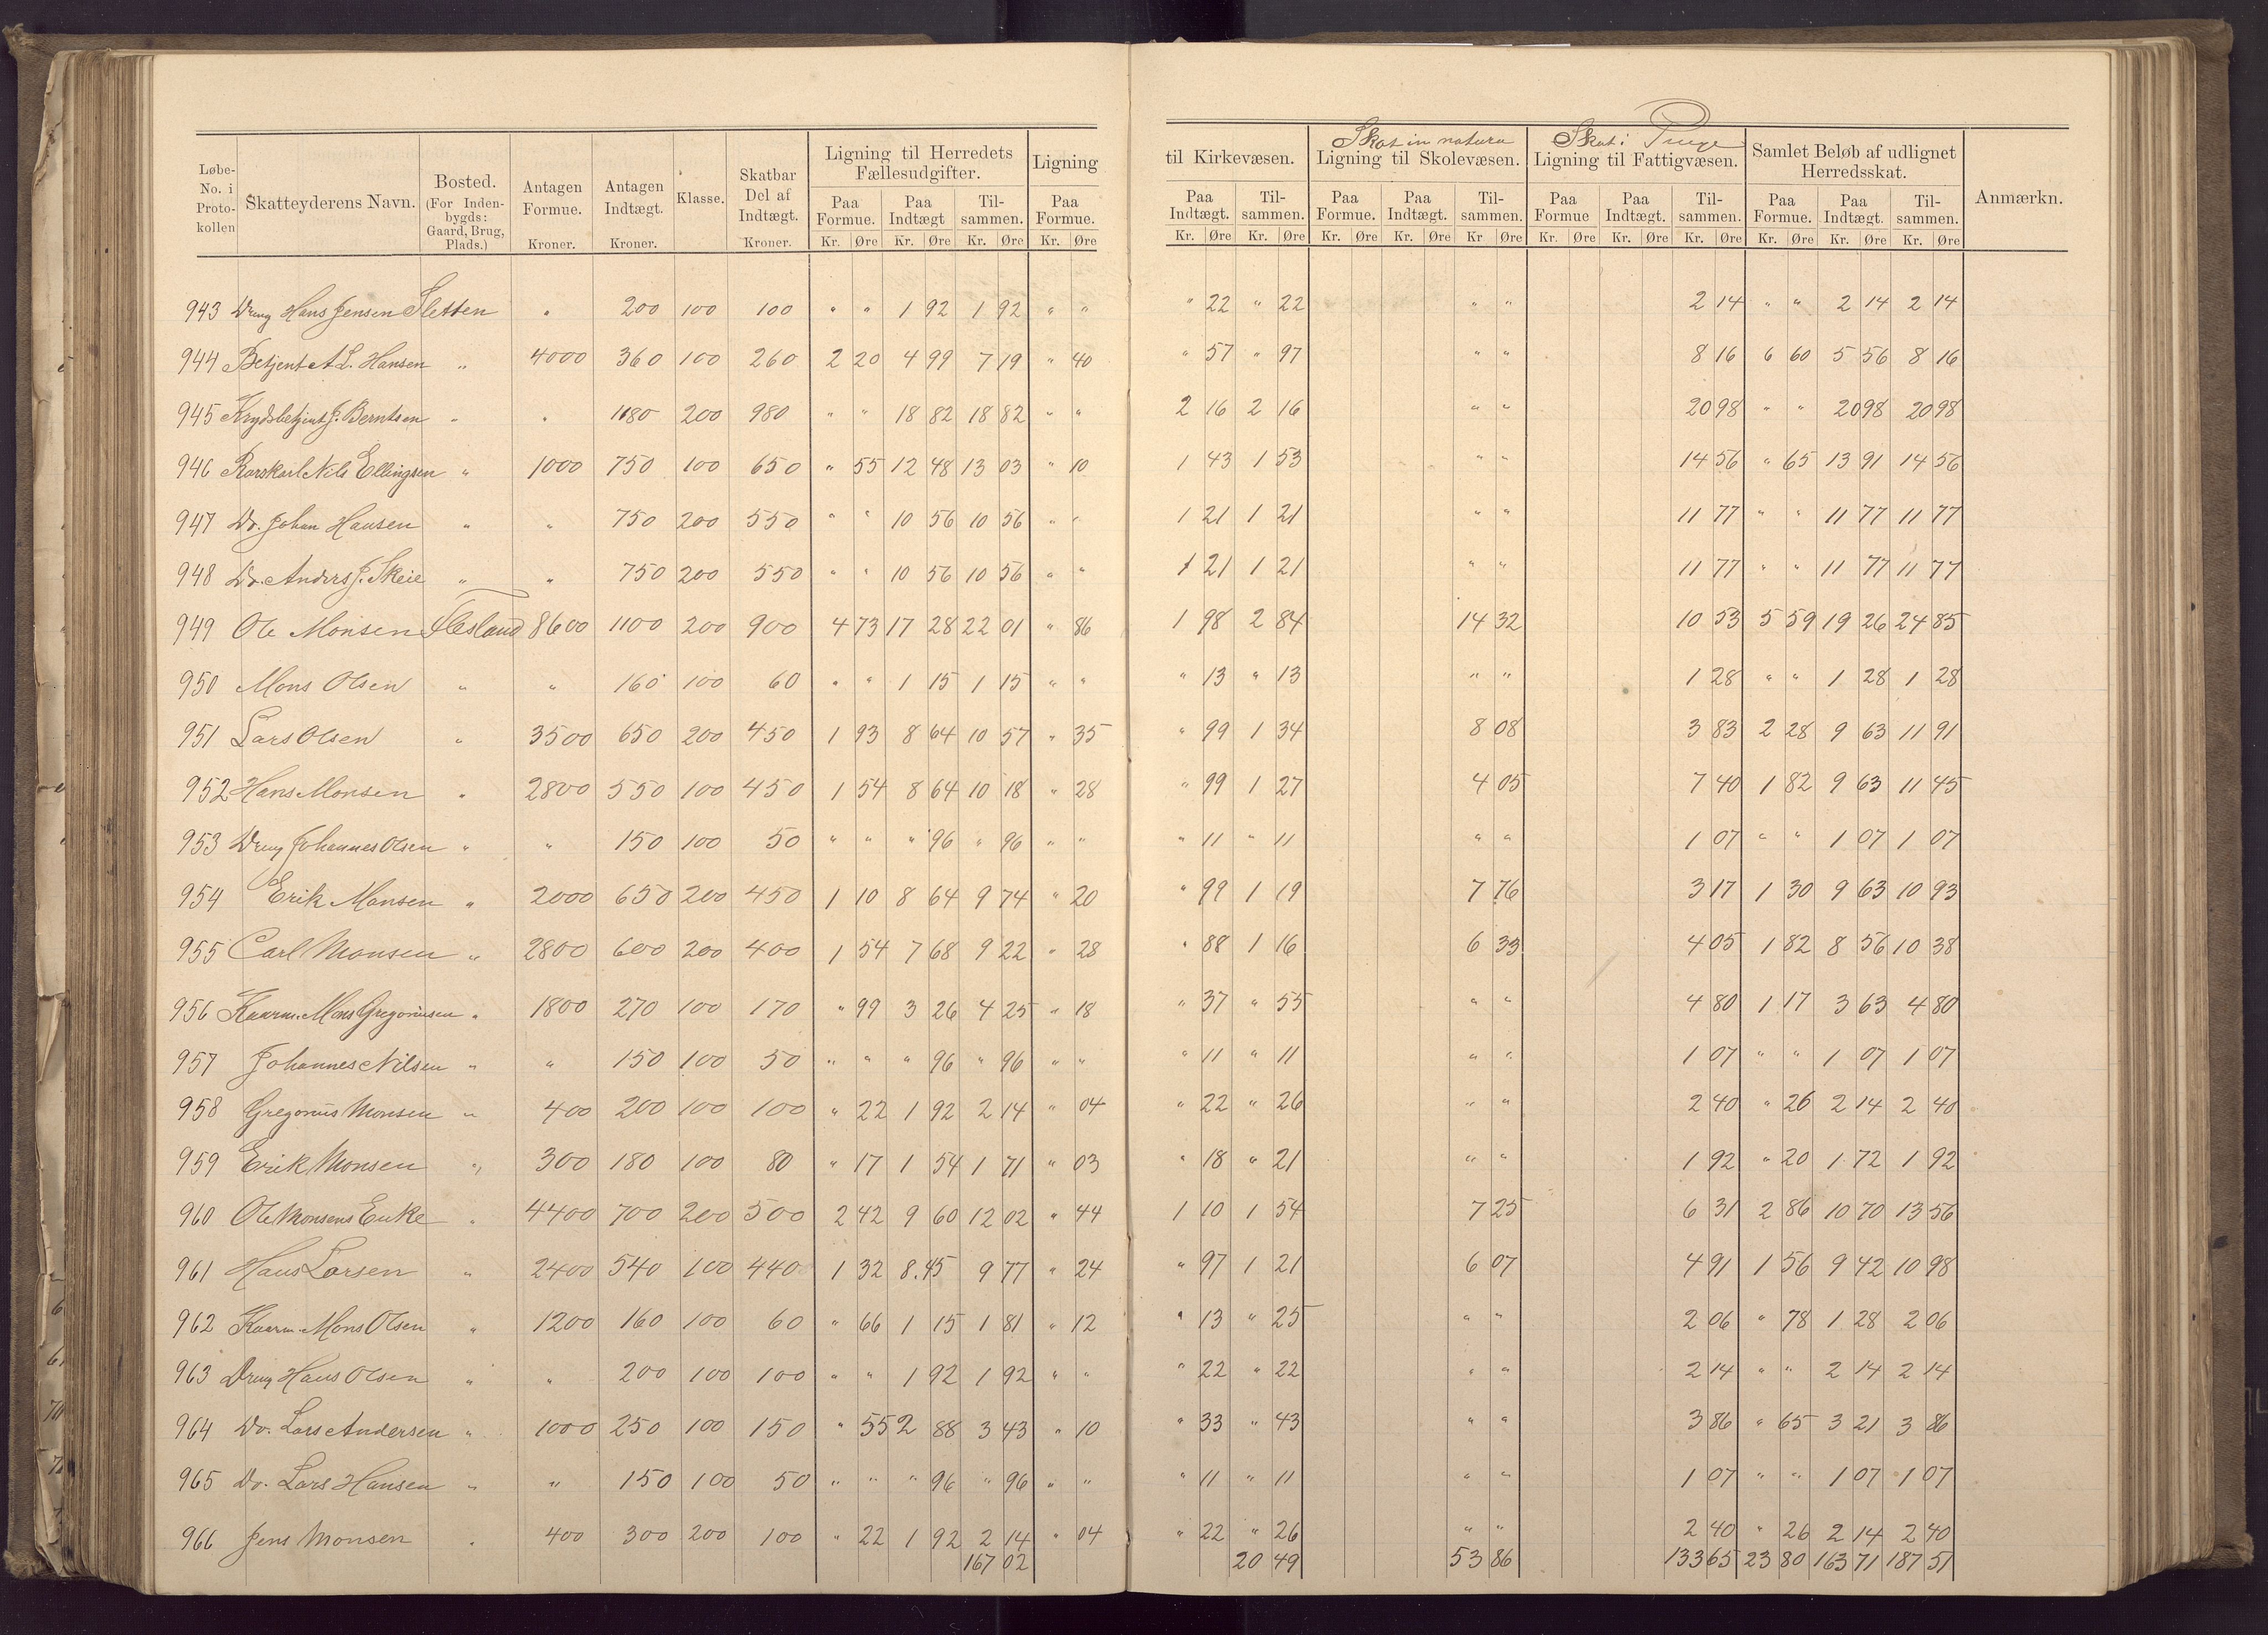 Skat in natura Skat i Penge
Løbe-No. i Protokollen Skatteyderens Navn. Bosted. (For Indenbygds: Gaard, Brug, Plads.) Antagen Formue. Kroner. Antagen Indtægt. Kroner. Klasse. Skatbar Del af Indtægt. Kroner. Ligning til Herredets Fællesudgifter. Ligning til Kirkevæsen. Ligning til Skolevæsen. Ligning til Fattigvæsen. Samlet Beløb af udlignet Herredsskat. Anmærkn.
Paa Formue. Paa Indtægt Tilsammen. Paa Formue. Paa Indtægt. Tilsammen. Paa Formue. Paa Indtægt. Tilsammen. Paa Formue Paa Indtægt. Tilsammen. Paa Formue. Paa Indtægt. Tilsammen.
Kr. Øre Kr. Øre Kr. Øre Kr. Øre Kr. Øre Kr. Øre Kr. Øre Kr. Øre Kr Øre Kr. Øre Kr. Øre Kr. Øre Kr. Øre Kr. Øre Kr. Øre
943 Dreng Hans Jensen Sletten " 200 100 100 " " 1 92 1 92 " " " 22 " 22 " " 2 14 " " 2 14 2 14
944 Betjent A. L. Hansen " 4000 360 100 260 2 20 4 99 7 19 " 40 " 57 " 97 " " 8 16 6 60 5 56 8 16
945 Krydsbetjent J. Berntsen " " 1180 200 980 " " 18 82 18 82 " " 2 16 2 16 " " 20 98 " " 20 98 20 98
946 Rorskarl Nils Ellingsen " 1000 750 100 650 " 55 12 48 13 03 " 10 1 43 1 53 " " 14 56 " 65 13 91 14 56
947 Do. Johan Hansen " " 750 200 550 " " 10 56 10 56 " " 1 21 1 21 " " 11 77 " " 11 77 11 77
948 Do. Anders J. Skeie " " 750 200 550 " " 10 56 10 56 " " 1 21 1 21 " " 11 77 " " 11 77 11 77
949 Ole Monsen Flesland 8600 1100 200 900 4 73 17 28 22 01 " 86 1 98 2 84 14 32 10 53 5 59 19 26 24 85
950 Mons Olsen " " 160 100 60 " " 1 15 1 15 " " " 13 " 13 " " 1 28 " " 1 28 1 28
951 Lars Olsen " 3500 650 200 450 1 93 8 64 10 57 " 35 " 99 1 34 8 08 3 83 2 28 9 63 11 91
952 Hans Monsen " 2800 550 100 450 1 54 8 64 10 18 " 28 " 99 1 27 4 05 7 40 1 82 9 63 11 45
953 Dreng Johannes Olsen " " 150 100 50 " " " 96 " 96 " " " 11 " 11 " " 1 07 " " 1 07 1 07
954 Erik Monsen " 2000 650 200 450 1 10 8 64 9 74 " 20 " 99 1 19 7 76 3 17 1 30 9 63 10 93
955 Carl Monsen " 2800 600 200 400 1 54 7 68 9 22 " 28 " 88 1 16 6 33 4 05 1 82 8 56 10 38
956 Kaarm. Mons Gregoriusen " 1800 270 100 170 " 99 3 26 4 25 " 18 " 37 " 55 " " 4 80 1 17 3 63 4 80
957 Johannes Nilsen " " 150 100 50 " " " 96 " 96 " " " 11 " 11 " " 1 07 " " 1 07 1 07
958 Gregorius Monsen " 400 200 100 100 " 22 1 92 2 14 " 04 " 22 " 26 " " 2 40 " 26 2 14 2 40
959 Erik Monsen " 300 180 100 80 " 17 1 54 1 71 " 03 " 18 " 21 " " 1 92 " 20 1 72 1 92
960 Ole Monsens Enke " 4400 700 200 500 2 42 9 60 12 02 " 44 1 10 1 54 7 25 6 31 2 86 10 70 13 56
961 Hans Larsen " 2400 540 100 440 1 32 8.45 9 77 " 24 " 97 1 21 6 07 4 91 1 56 9 42 10 98
962 Kaarm. Mons Olsen " 1200 160 100 60 " 66 1 15 1 81 " 12 " 13 " 25 " " 2 06 " 78 1 28 2 06
963 Dreng Hans Olsen " " 200 100 100 " " 1 92 1 92 " " " 22 " 22 " " 2 14 " " 2 14 2 14
964 Do. Lars Andersen " 1000 250 100 150 " 55 2 88 3 43 " 10 " 33 " 43 " " 3 86 " 65 3 21 3 86
965 Do. Lars Hansen " " 150 100 50 " " " 96 " 96 " " " 11 " 11 " " 1 07 " " 1 07 1 07
966 Jens Monsen " 400 300 200 100 " 22 1 92 2 14 " 04 " 22 " 26 " " 2 40 " 26 2 14 2 40
167 02 20 49 53 86 133 65 23 80 163 71 187 51